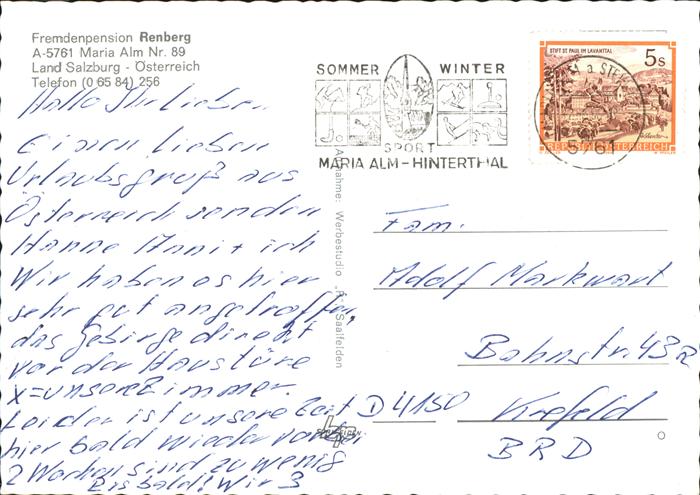 Fremdenpension Renberg
A-5761 Maria Alm Nr. 89
Land Salzburg - Österreich
Telefon (0 65 84) 256
Hallo Ihr Lieben
Einen lieben
Urlaubsgruß aus
Österreich senden
Hanne Anni + ich
Wir haben es hier
sehr gut angetroffen,
das Gebirge direkt
vor der Haustüre
x=unser Zimmer.
Leider ist unsere Zeit
hier bald wieder vorbei
2 Wochen sind zu wenig
Bis bald! Wir 3
SOMMER WINTER
SPORT
MARIA ALM - HINTERTHAL
STIFT ST. PAUL IM LAVANTTAL
5 S
REPUBLIK ÖSTERREICH
5761
Aufnahme: Werbestudio Saalfelden
Fam.
Adolf Markwart
Bahnstr. 43 R
D 4150 Krefeld
BRD